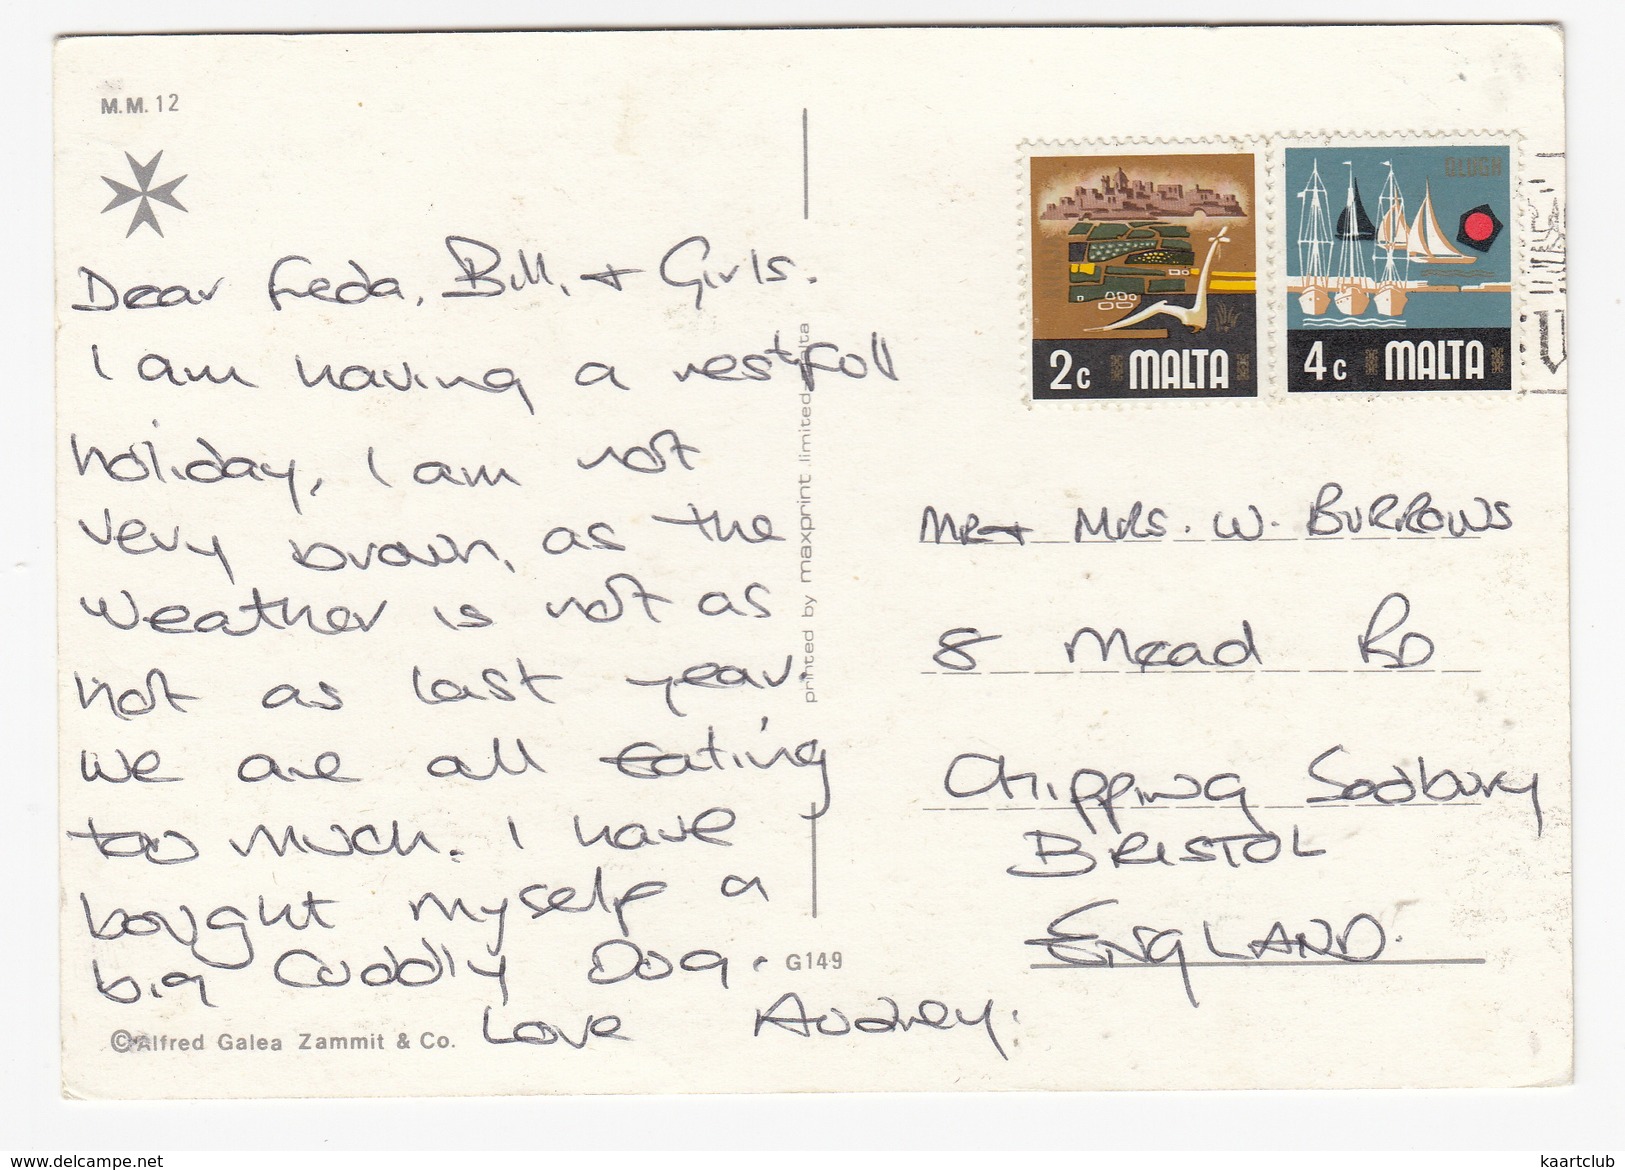 M.M. 12
Dear Freda, Bill, + Girls.
I am having a restfoll
holiday, I am not
very brown, as the
weather is not as
hot as last year.
We are all Eating
too much. I have
bought myself a
big Cuddly Dog.
Love Audrey.
©Alfred Galea Zammit & Co.
printed by maxprint limited malta
G149
2c MALTA
4c MALTA
MR + MRS. W. BURROWS
8 Mead RD
Chipping Sodbury
BRISTOL
ENGLAND.
www.delcampe.net
kaartclub